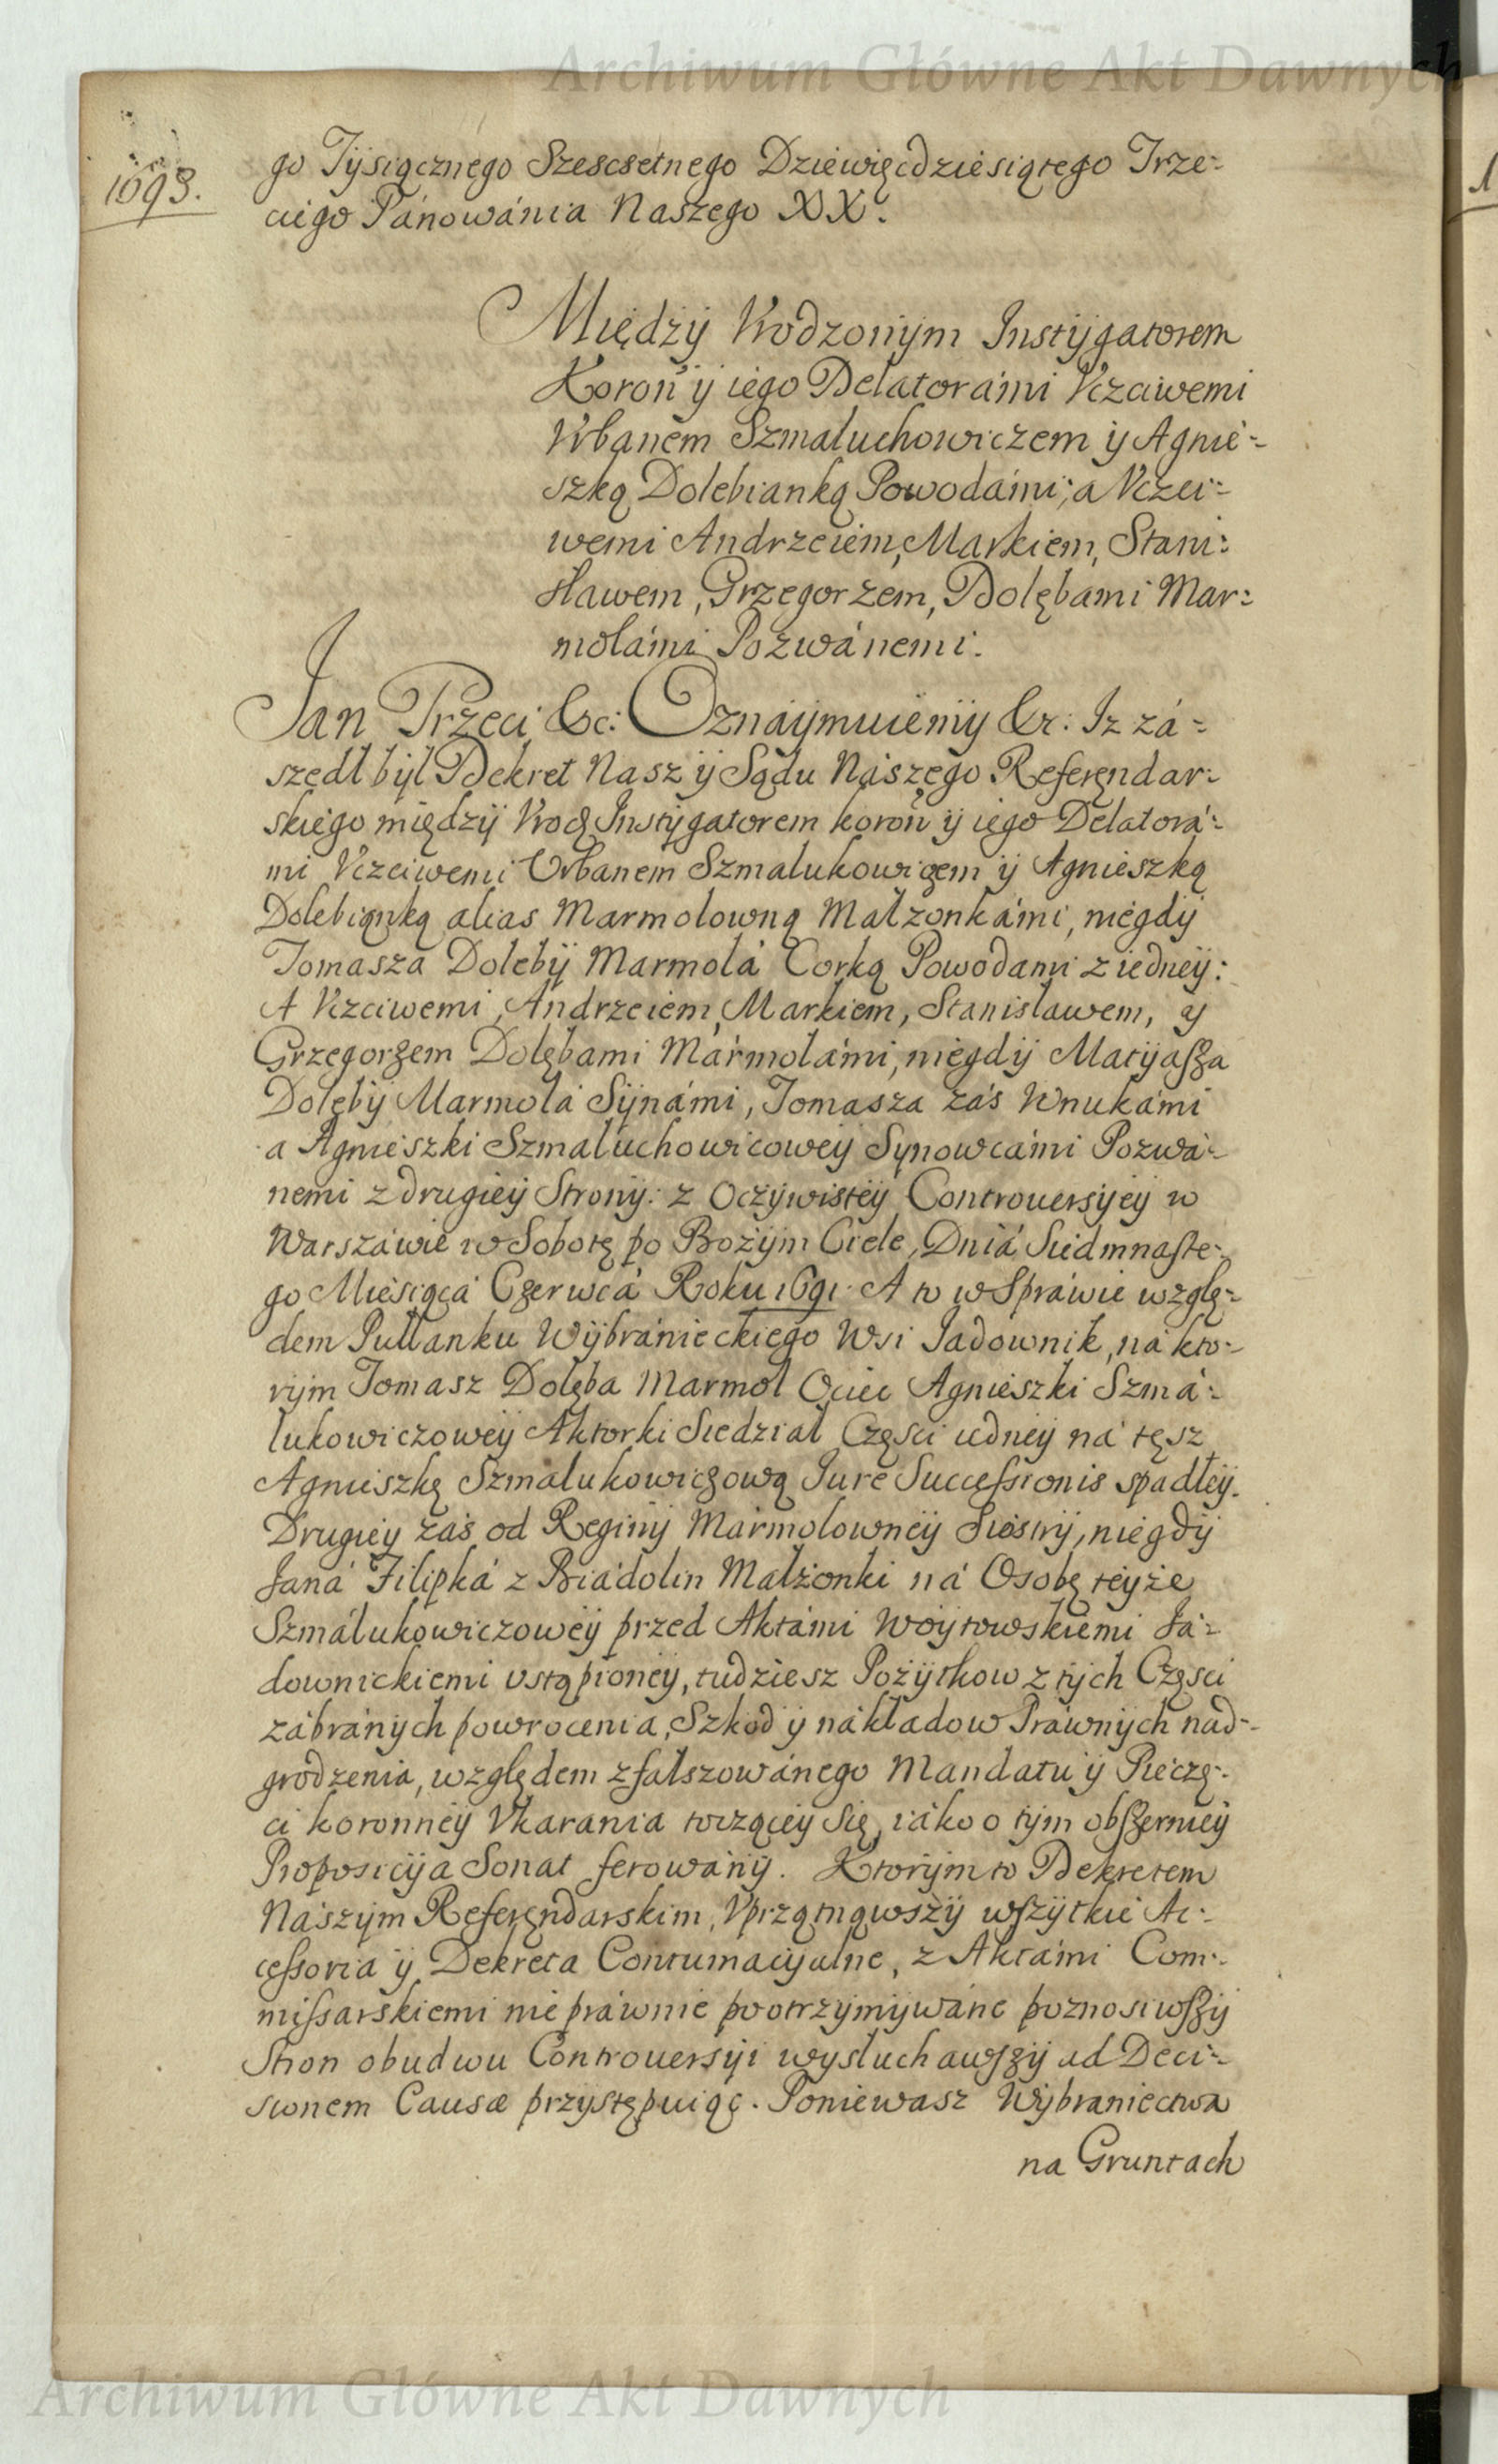 Archiwum Główne Akt Dawnych
1693.
go Tysiącznego Szescsetnego Dziewięcdziesiątego Trze-
ciego Pánowánia Naszego XX.
Między Vrodzonym Instygatorem
Koroñ y iego Delatorámi Vczciwemi
Vrbanem Szmaluchowiczem y Agnie-
szką Dolebianką Powodámi; a Vczci-
wemi Andrzeiem, Markiem, Stani-
sławem, Grzegorzem, Dolębami Mar-
mołámi Pozwánemi.
Jan Trzeci &c: Oznaymuiemy &c: Iz zá-
szedł był Dekret Nasz y Sądu Nászego Referęndar-
skiego między Vrod Instygatorem koroñ y iego Delatorá-
mi Vczciwemi Vrbanem Szmalukowiczem y Agnieszką
Dolebianką alias Marmolowną Małzonkámi, niegdy
Tomasza Doleby Marmolá Corką Powodami z iedney:
A Vczciwemi, Andrzeiem, Markiem, Stanisławem, y
Grzegorzem Dolębami Mármolámi, niegdy Matyasza
Dolęby Marmolá Synámi, Tomasza zás Wnukámi
a Agnieszki Szmaluchowicowey Synowcámi Pozwá-
nemi z drugiey Strony: z Oczywistey Controuersyey w
Warszáwie w Sobotę po Bożym Ciele, Dniá Siedmnaste-
go Miesiącá Czerwcá Roku 1691. A to w Spráwie wzglę-
dem Pułłanku Wybránieckiego Wsi Jadownik, ná kto-
rym Tomasz Dolęba Marmol Ociec Agnieszki Szmá-
lukowiczowey Aktorki Siedział Częsci iedney ná tęsz
Agnieszkę Szmalukowiczową Jure Successionis spadłey.
Drugiey zás od Reginy Mármolowney Siostry, niegdy
Janá Filipká z Biádolin Małżonki ná Osobę teyże
Szmálukowiczowey przed Aktámi Woytowskiemi Já-
downickiemi vstąpioney, tudziesz Pożytkow z tych Częsci
zábránych powrocenia, Szkod y nákładow Práwnych nad-
grodzenia, względem zfałszowánego Mandatu y Pieczę-
ci koronney Vkarania toczącey się, iáko o tym obszerniey
Proposicya Sonat ferowány. Ktorym to Dekretem
Nászym Referęndarskim, Vprzątnąwszy wszytkie Ac-
cessoria y Dekreta Contumacyalne, z Aktámi Com-
missarskiemi nie práwnie pootrzymywáne poznosiwszy
Stron obudwu Controuersyi wysłuchawszy ad Deci-
sionem Causæ przystępuiąc. Poniewasz Wybraniectwa
na Gruntach
Archiwum Główne Akt Dawnych